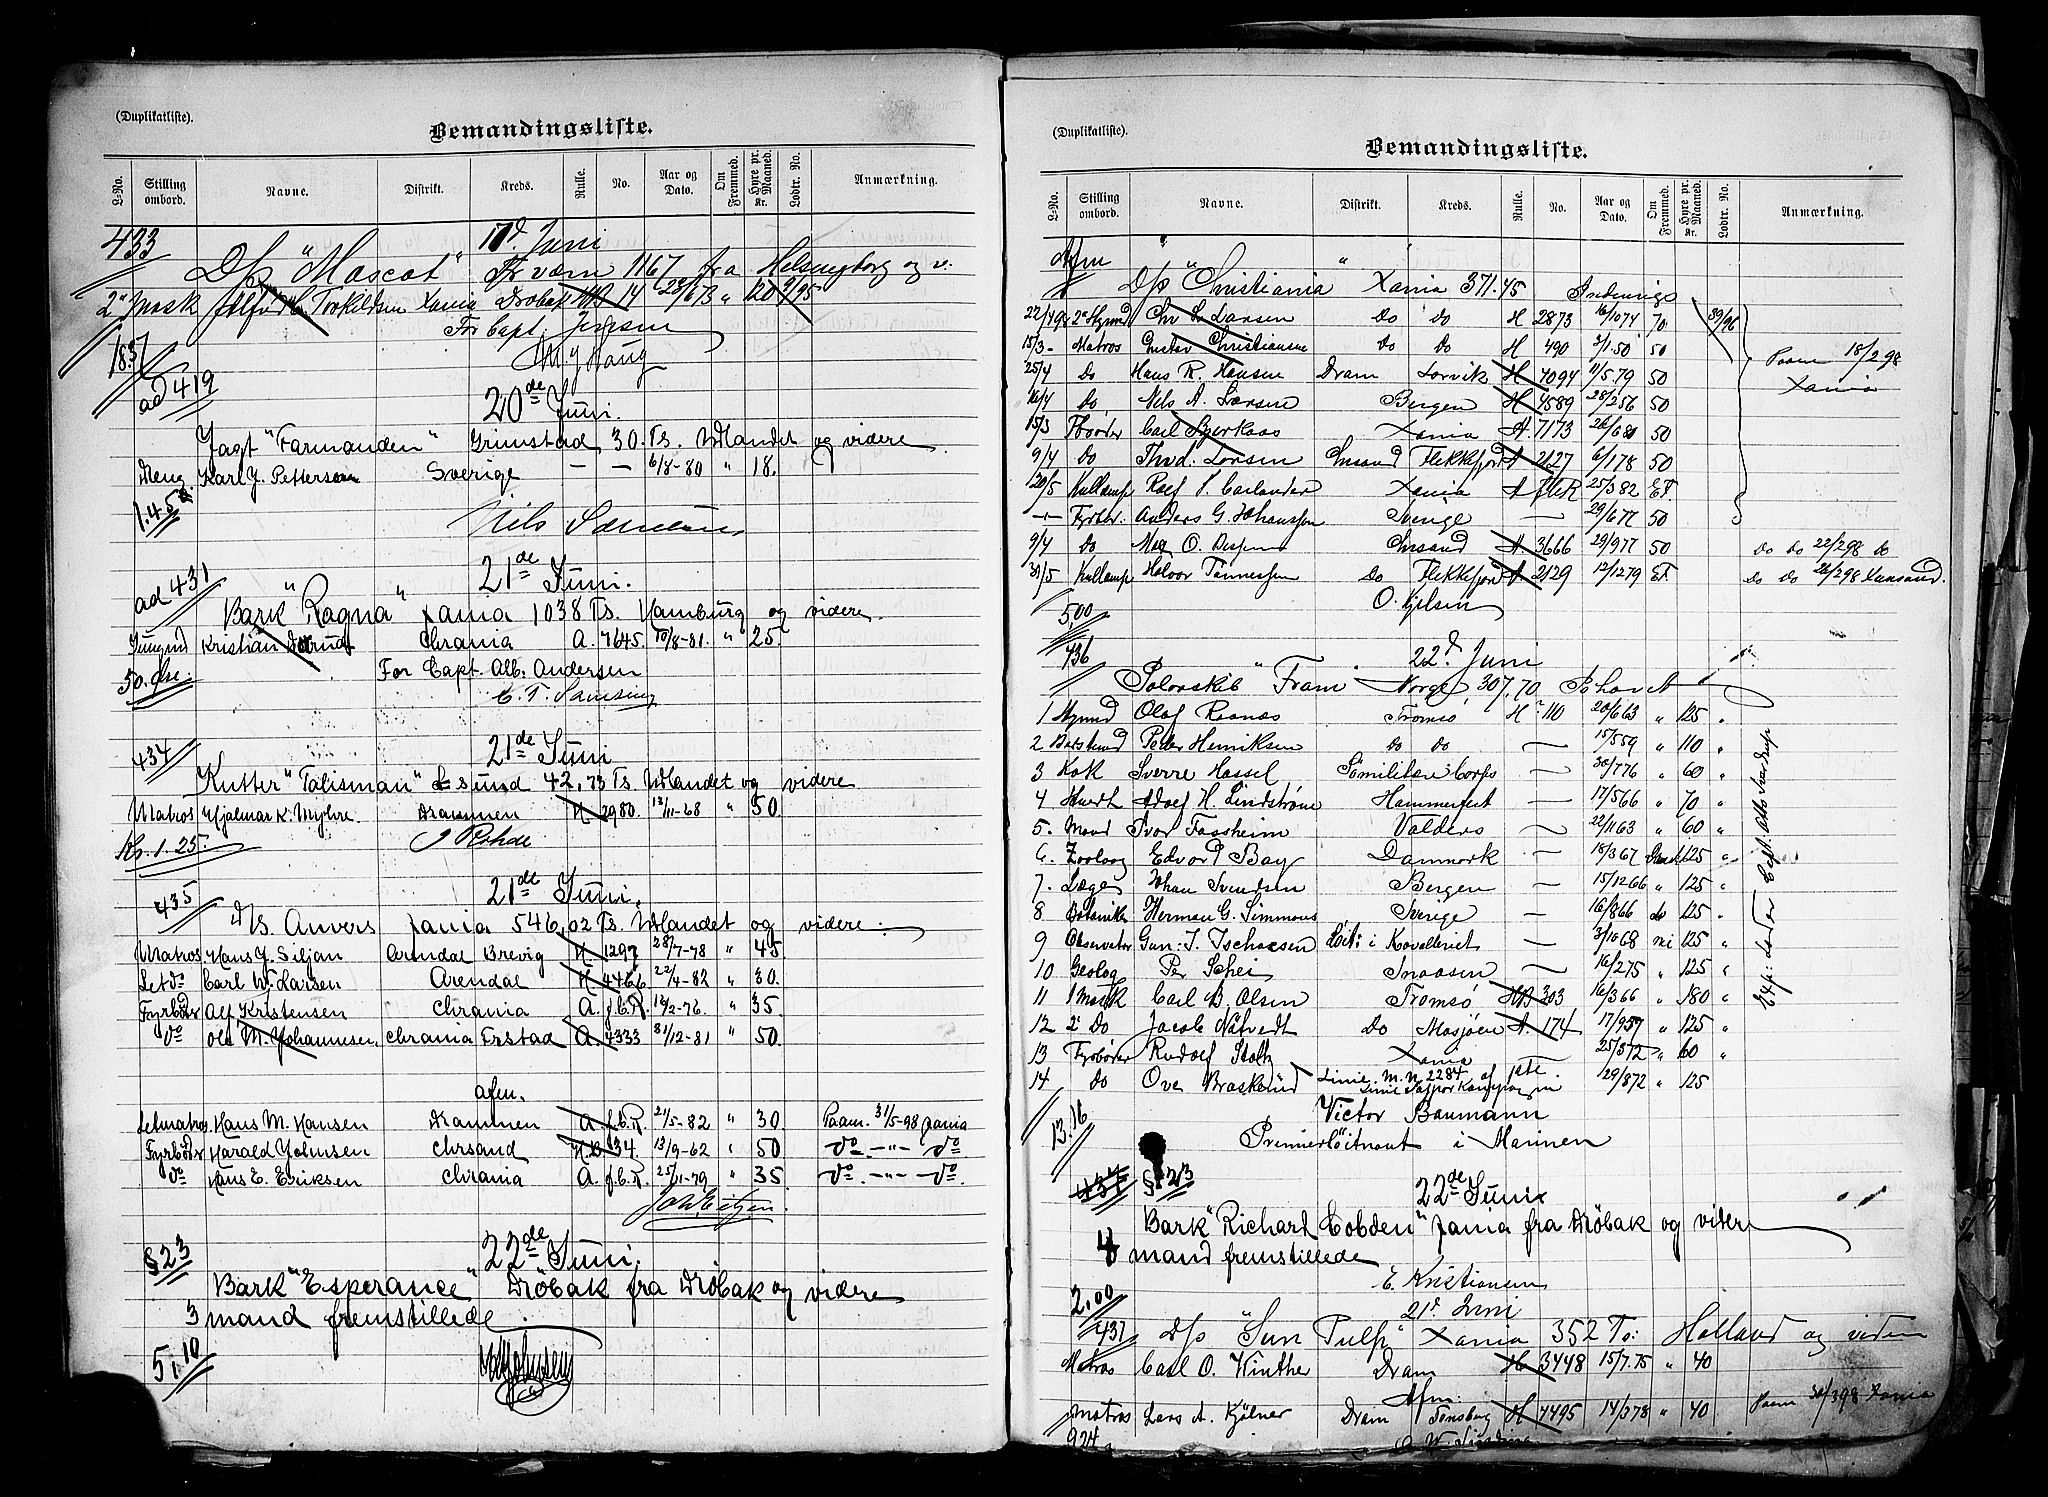 (Duplikatliste).
Bemandingsliste.
L-No. Stilling ombord. Navne. Distrikt. Kreds. Rulle. No. Aar og Dato. Om Fremmed. Hyre pr. Maaned. Kr. Lodtr. No. Anmærkning.
433
17d Juni
D/s "Mascot" 1167 fra Helsingborg og v.
2d Mask Torkildsen Xania Drøbak HB 14 23/673 " 120 9/95
For Capt. Jensen
18.37
ad 419
20de Juni.
Jagt "Farmanden" Grimstad 30. Ts. Udlandet og videre
Karl J. Petterson Sverige — — 6/8-80 " 18.
1.45
Nils
ad 431
21de Juni.
Bark "Ragna" Xania 1038 Ts. Hamburg og videre.
Jungmd Kristian Chrania A. 7645. 10/8-81. " 25.
50. Øre.
For Capt. Alb. Andersen
434
21de Juni
Kutter "Talisman" 42,73 Ts. Udlandet og videre
Matros Hjalmar K. Myhre. Drammen H 2980. 12/11-68 " 50
Kr. 1.25.
J Rohde
435
21de Juni.
D/s. Anvers Xania 546,02 Ts. Udlandet og videre.
Matros Hans J. Siljan Arendal Brevig H 1297 28/7-78 " 45
Letdo Carl W. Larsen Arendal H 4466 22/4-82 " 30.
Fyrbøder Alf Kristensen Chrania A. f.C.R. 12/2-76. " 35
do Ole M. Johannesen, Chrania Erstad A. 4333 31/12-81 " 50.
afm.
Letmatros Hans M. Hansen Drammen A f.C.R. 21/5-82 " 30 Paam. 31/5-98 Xania
Fyrbøder Harald Johnsen Chrsand H.B 134. 13/9-62 " 50 do -"- do
do Hans E. Eriksen Chrania A. f.C.R. 25/11-79 " 35. do -"- do
§23
22de Juni.
Bark "Esperance" Drøbak fra Drøbak og videre
3 mand fremstillede.
5,10
(Duplikatliste).
Bemandingsliste.
L-No. Stilling ombord. Navne. Distrikt. Kreds. Rulle. No. Aar og Dato. Om Fremmed. Hyre pr. Maaned. Kr. Lodtr. No. Anmærkning.
Afm
D/s "Christiania" Xania 371.45 Indenrigs
22/498 2d Stymd Chr. L. Larsen Do Do H 2873 16/1074 70 39/96
15/3 - Matros Gustav Christiansen Do Do H 490 3/1.50 50
25/4 Do Hans R. Hansen Dram Larvik H 7094 11/5.79 50
Paam 18/2.98 Xania
16/4 Do Nils A. Larsen Bergen H 4589 28/256 50
15/3 Carl Bjerkaas Xania A. 7173 26/680 50
9/4 Do Thvd. Larsen Chrsand Flekkefjord A 2127 6/178 50
20/5 Kullemp Rolf S. Carlander Xania A f.C.R 25/382 EF
-"- Fyrbør. Anders G. Johanssen Sverige — 29/677 50
9/4 Do O. Chrsand A 3666 29/977 50 do do 22/298 do
30/5 Kullemp Halvor Tønnessen Do Flekkefjord A 2129 12/1279 EF Do Do 26/298 Xansand.
O. Kjelsen
5,00
436
22d Juni
Polarskib "Fram" Norge 307,70 Ishavet
1 Stymd Olaf Raanæs Tromsø H 110 20/663 " 125 "
2 Baadsmd Peder Henriksen do do — 15/559 " 110 "
3 Kok Sverre Hassel Sømilitære Corps — 30/776 " 60 "
4 Stuert Adolf H. Lindstrøm Hammerfest — 17/566 " 70 "
5. Mand Ivor Fossheim Valders — 22/1163 " 60 "
6. Zoolog Edvard Bay Danmark — 18/367 Dansk 125 "
7. Læge Johan Svendsen Bergen — 15/1266 " 125 "
8 Botaniker Herman G. Simmons Sverige — 16/866 do 125 "
9 Observator Gun: I. Ischacsen Løit: i Kavalleriet — 3/1068 mi 125 "
10 Geolog Per Schei Snaasen — 16/275 " 125 "
11 1 Mask Carl B. Olsen Tromsø HB 303 16/366 " 180 "
12 2d Do Jacob Nødtvedt Do Mosjøen A. 174 17/957 " 125 "
13 Fyrbøder Rudolf Stoltz Xania 25/372 " 60 "
14 Do Ove Braskerud Linie. M. N 2284 af 29/872 " 125
Exp: leder Capt. Otto Sverdrup
Victor Baumann
Premierløitnant i Marinen
13.16
437
§23
22de Juni
Bark "Richard Cobden" Xania fra Drøbak og videre
4 mand fremstillede
E. Kristiansen
2,00
21d Juni
437 D/s "Sun Xania 352 Ts: Holland og videre
Matros Carl O. Winther Dram H 3448 15/7.75 " 40
Afm.
Matros Lars A. Kjølner Dram Tønsberg H 7495 14/378 " 40 Paam 30/398 Xania
924